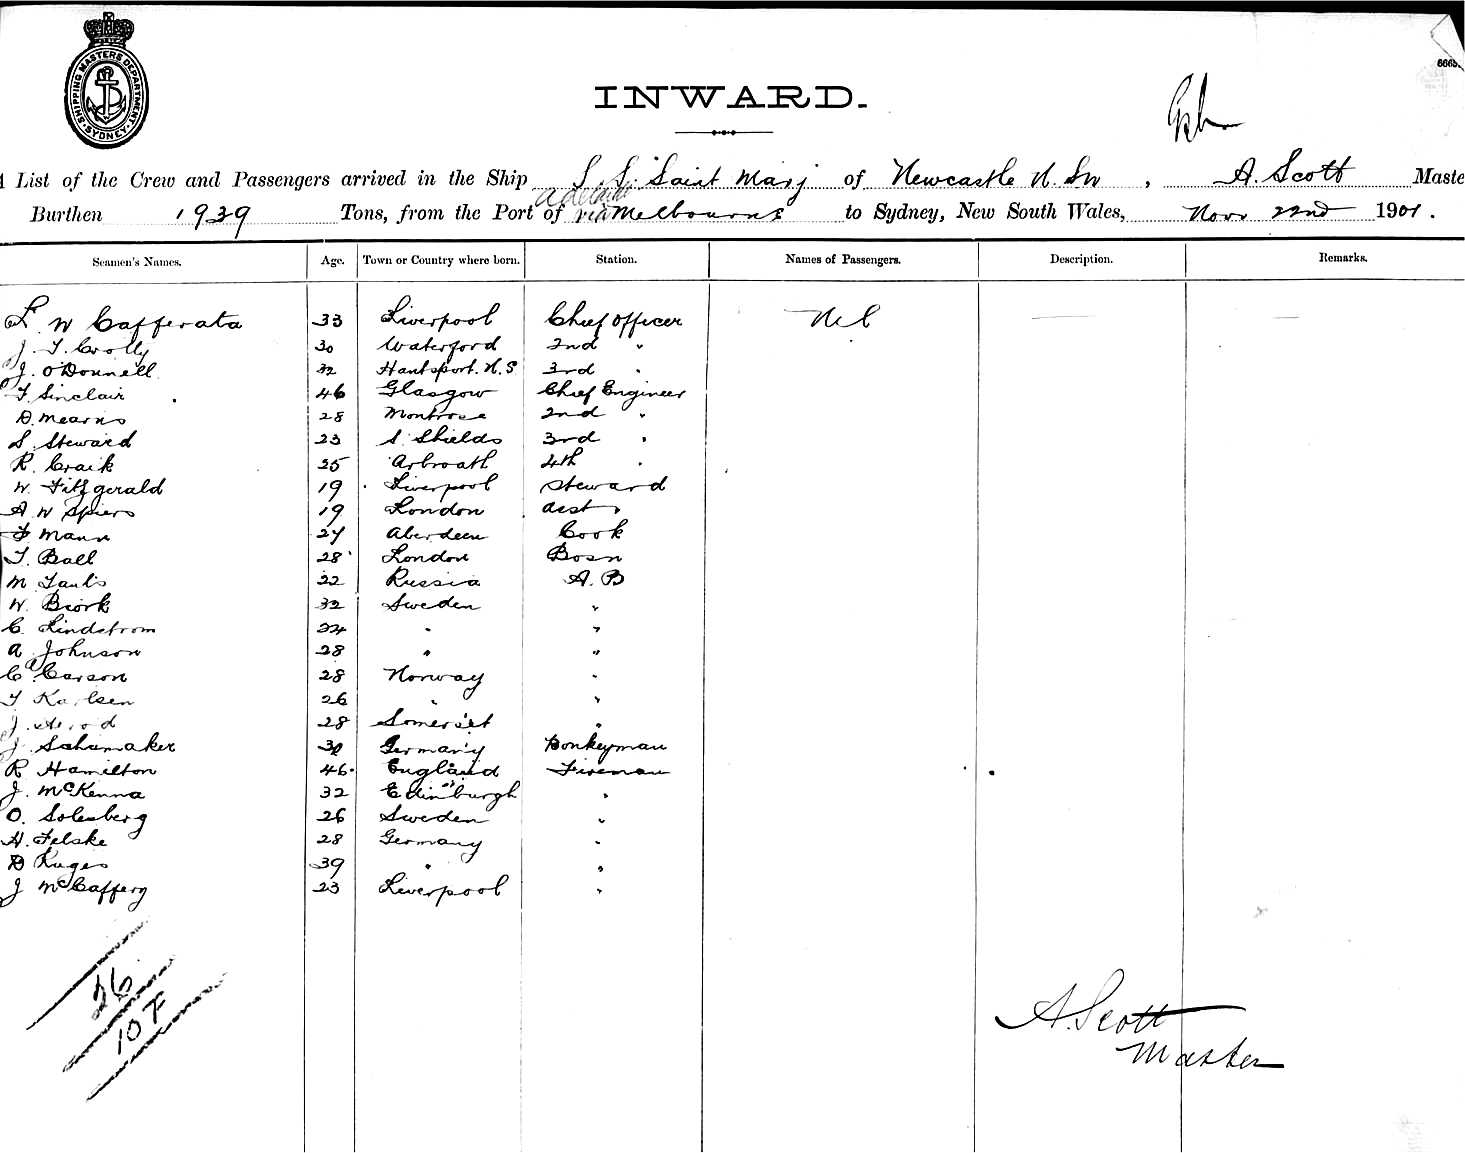 SHIPPING MASTERS DEPARTMENT SYDNEY
INWARD.
List of the Crew and Passengers arrived in the Ship S. S. Saint Mary of Newcastle N. SW , A. Scott Maste
Adelaide
Burthen 1939 Tons, from the Port of via Melbourne to Sydney, New South Wales, Novr 22nd 1901.
Seamen's Names. Age. Town or Country where born. Station. Names of Passengers. Description. Remarks.
L. W Cafferata 33 Liverpool Chief Officer Nil —
J. T. Crolly 30 Waterford 2nd "
J. O'Donnell 32 Hantsport. N. S 3rd "
T. Sinclair 46 Glasgow Chief Engineer
D. Mearns 28 Montrose 2nd "
S. Steward 23 S. Shields 3rd "
R. Craik 25 Arbroath 4th "
W. Fitzgerald 19 Liverpool Steward
A W Spiers 19 London Asst "
F Mann 27 Aberdeen Cook
T. Ball 28 London Bosn
M 22 Russia A. B
W. Bjork 32 Sweden "
C. Lindstrom 24 " "
A Johnson 28 " "
C A Carson 28 Norway "
T Karlsen 26 " "
J. 28 Somerset "
J. Schumaker Germany Donkeyman
R Hamilton 46 England Fireman
J. McKenna 32 Edinburgh "
O. Solesberg 26 Sweden "
H. Felske 28 Germany "
D Kuges 39 " "
J McCaffery 23 Liverpool "
26
10 F
A. Scott
Master